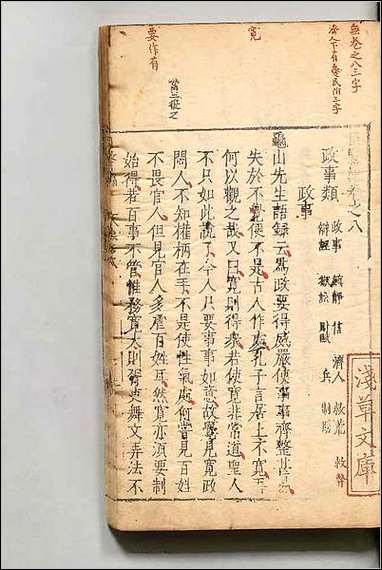 無卷之八三字
濟人下有憂民俗三字
寬
要作有
之八
政事類
政事 鎮靜 信 濟人 救荒 救弊
辯誣 獄訟 財賦 兵 制
政事
龜山先生語錄云爲政要得威嚴使事事齊整甚易
失於不寬便不是古人作處孔子言居上不寬吾
何以觀之哉又曰寬則得衆若使寬非常道聖人
不只如此說了今人只要事事如意故覺見寬政
悶人不知權柄在手不是使性氣處何嘗見百姓
不畏官人但見官人多虐百姓耳然寬亦須要制
始得若百事不管惟務寬大則胥吏舞文弄法不
淺草文庫